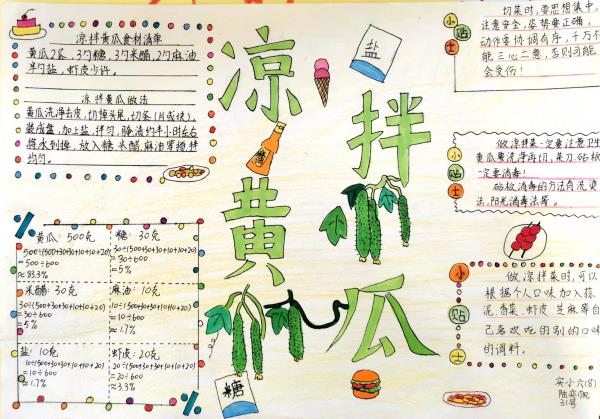 凉拌黄瓜食材清单
黄瓜2条，3勺糖，3勺米醋，2勺麻油
半勺盐，虾皮少许。
凉拌黄瓜做法
黄瓜洗净去皮，切掉头尾，切条（片或块）。
装成盘，加上盐，拌匀，腌渍约半小时左右
将水倒掉，放入糖、米醋、麻油等搅拌
均匀。
凉拌
黄瓜
盐
糖
小贴士
切菜时，要思想集中，
注意安全，姿势要正确，
动作要协调有序，千万不
能三心二意，否则可能
会受伤！
小贴士
做凉拌菜一定要注意卫生
黄瓜要洗净再切，菜刀、砧板
一定要消毒！
砧板消毒的方法有洗烫
法，阳光消毒法等。
小贴士
做凉拌菜时，可以
根据个人口味加入蒜
泥 香菜 虾皮 芝麻等自
己喜欢吃的别的口味
的调料。
%
黄瓜：500克
500÷(500+30+30+10+10+20)
=500÷600
≈83.3%
糖：30克
30÷(500+30+30+10+10+20)
=30÷600
=5%
米醋：30克
30÷(500+30+30+10+10+20)
=30÷600
=5%
麻油：10克
10÷(500+30+30+10+10+20)
=10÷600
≈1.7%
盐：10克
10÷(500+30+30+10+10+20)
=10÷600
≈1.7%
虾皮：20克
20÷(500+30+30+10+10+20)
=20÷600
≈3.3%
%
实小六(8)
31号